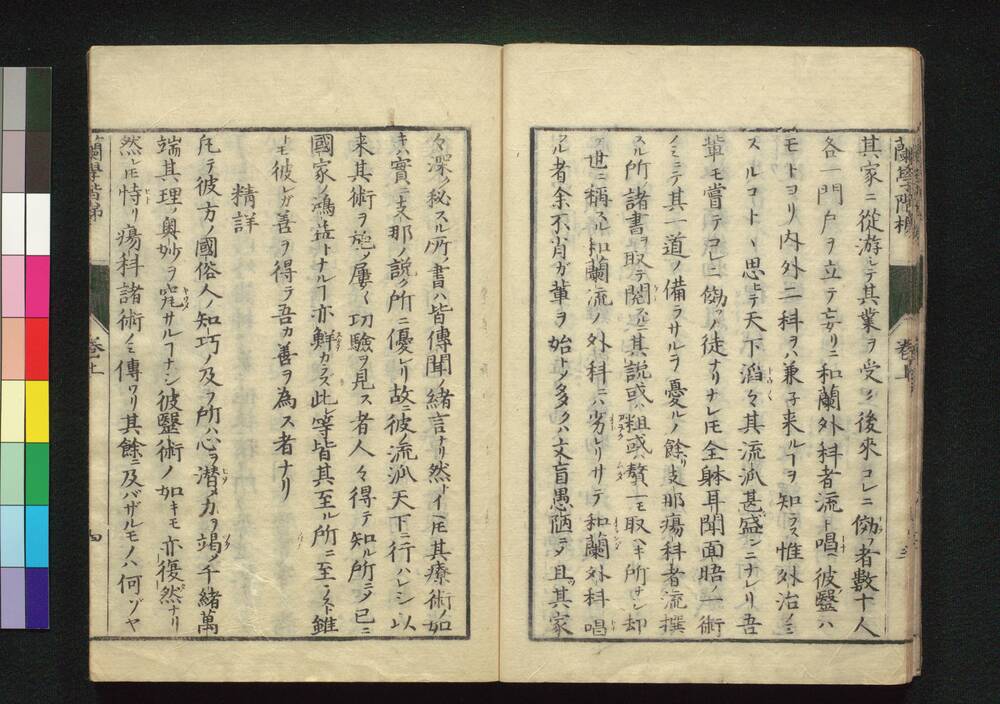 蘭學階梯 卷上 三
其家ニ從游シテ其業ヲ受ク後來コレニ傚フ者數十人
各一門戸ヲ立テ妄リニ和蘭外科者流ト唱フ彼醫ハ
モトヨリ内外二科ヲハ兼子来ルヿヲ知ラス惟外治ノミ
スルコト丶思ヒテ天下滔々其流派甚盛ンニナレリ吾
輩モ嘗テコレニ傚フノ徒ナリナレモ全躰耳聞面晤ノ一術
ノミニテ其一道ノ備ラサルヲ憂ルノ餘リ支那瘍科者流ノ撰
スル所ノ諸書ヲ取テ閲スルニ其説或ハ粗或ハ贅一モ取ヘキ所ナシ却
世ニ稱スル和蘭流ノ外科ニハ劣レリサテ和蘭外科ト唱
フル者余不肖ガ輩ヲ始トノ多クハ文盲愚陋ニノ且ツ其家
々深ク秘スル所ノ書ハ皆傳聞ノ緒言ナリ然トイヘトモ其療術ノ如
キハ實ニ支那ノ説ク所ニ優レリ故ニ彼流派天下ニ行ハレシ以
来其術ヲ施ノ屢〻功驗ヲ見ス者人々得テ知ル所ニノ已ニ
國家ノ鴻益トナルヿ亦鮮カラス此等皆其至ル所ニ至ラスト雖
トモ彼レガ善ヲ得テ吾カ善ヲ為ス者ナリ
精詳
凡テ彼方ノ國俗人ノ知巧ノ及フ所ハ心ヲ潜メ力ヲ竭ノ千緒萬
端其理ノ奥妙ヲ究サルヿナシ彼醫術ノ如キモ亦復然ナリ
然レトモ特リ瘍科諸術ノミ傳ワリ其餘ニ及バザルモノハ何ゾヤ
蘭學階梯 卷上 四